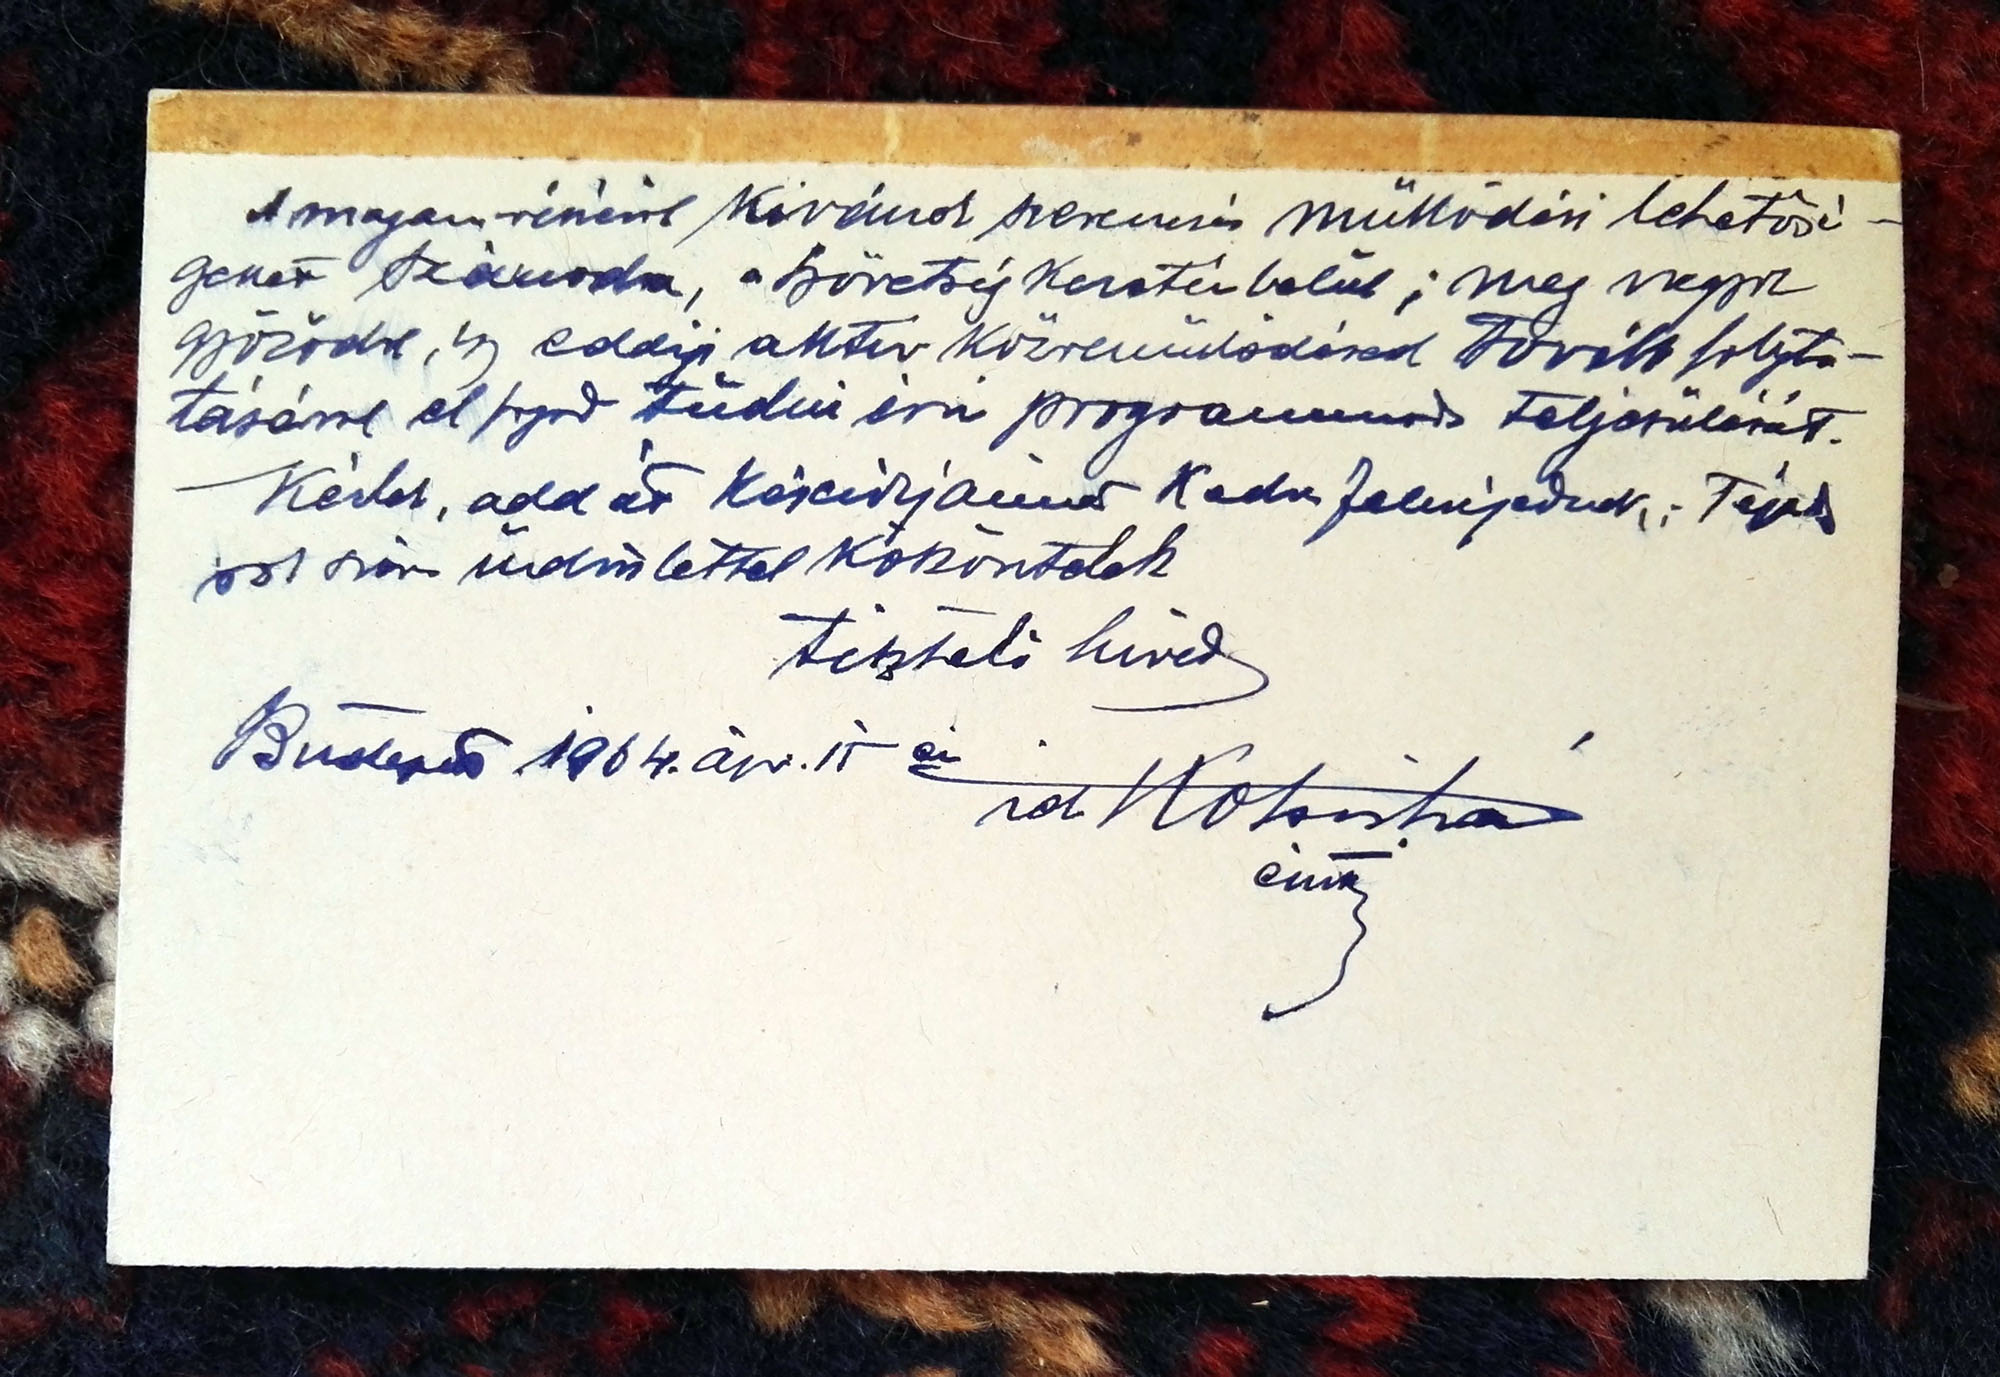 A magam részéről kívánok szerencsés működési lehetősé-
geket számodra, a szövetség keretén belül; meg vagyok
győződve, hogy eddigi aktív közreműködésed további folyta-
tásával el fogod tudni érni programmod teljesülését.
Kérlek, add át kézcsókjaimat Kedves feleségednek,; Téged
sok szíves üdvözlettel köszöntelek
tisztelő híved
Budapest 1964. ápr. 15 én
id.